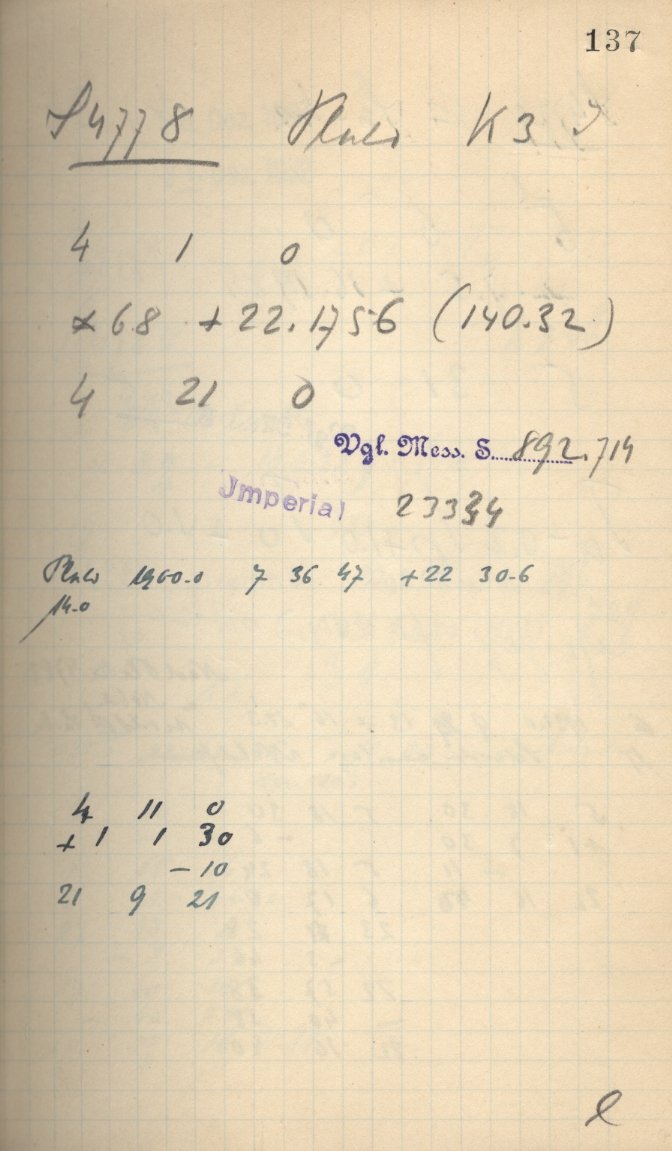 137
S 4778 Pluto K3
4 1 0
× 68 + 22.1756 (140.32)
4 21 0
Vgl. Mess. S. 892.714
Imperial 23334
Pluto 1960.0 7 36 47 +22 30.6
14.0
4 11 0
+ 1 1 30
– 10
21 9 21